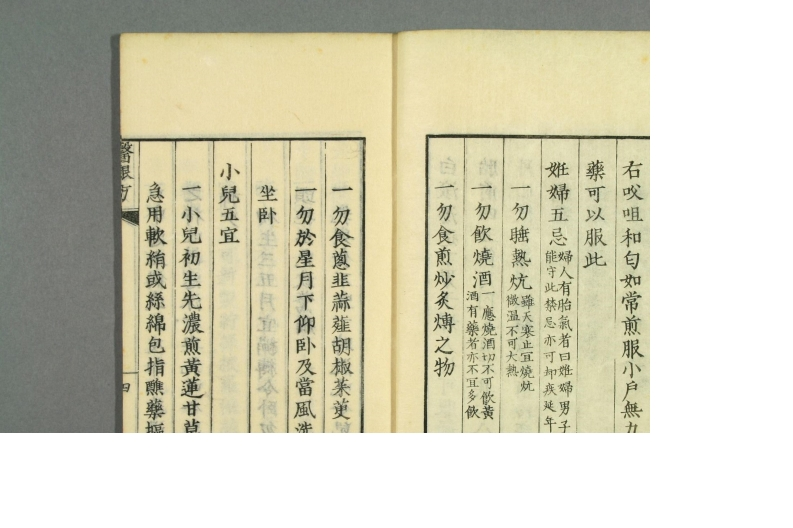 右咬咀和匀如常煎服小戶無力
藥可以服此
妊婦五忌 婦人有胎氣者曰妊婦男子
能守此禁忌亦可却疾延年
一勿睡熱炕 雖天寒止宜燒炕
微溫不可大熱
一勿飲燒酒 一應燒酒切不可飲黃
酒有藥者亦不宜多飲
一勿食煎炒炙煿之物
一勿食蔥韭蒜薤胡椒茱萸
一勿於星月下仰卧及當風洗
坐卧
小兒五宜
一小兒初生先濃煎黃蓮甘草
急用軟絹或絲綿包指蘸藥摳
醫眼方
四